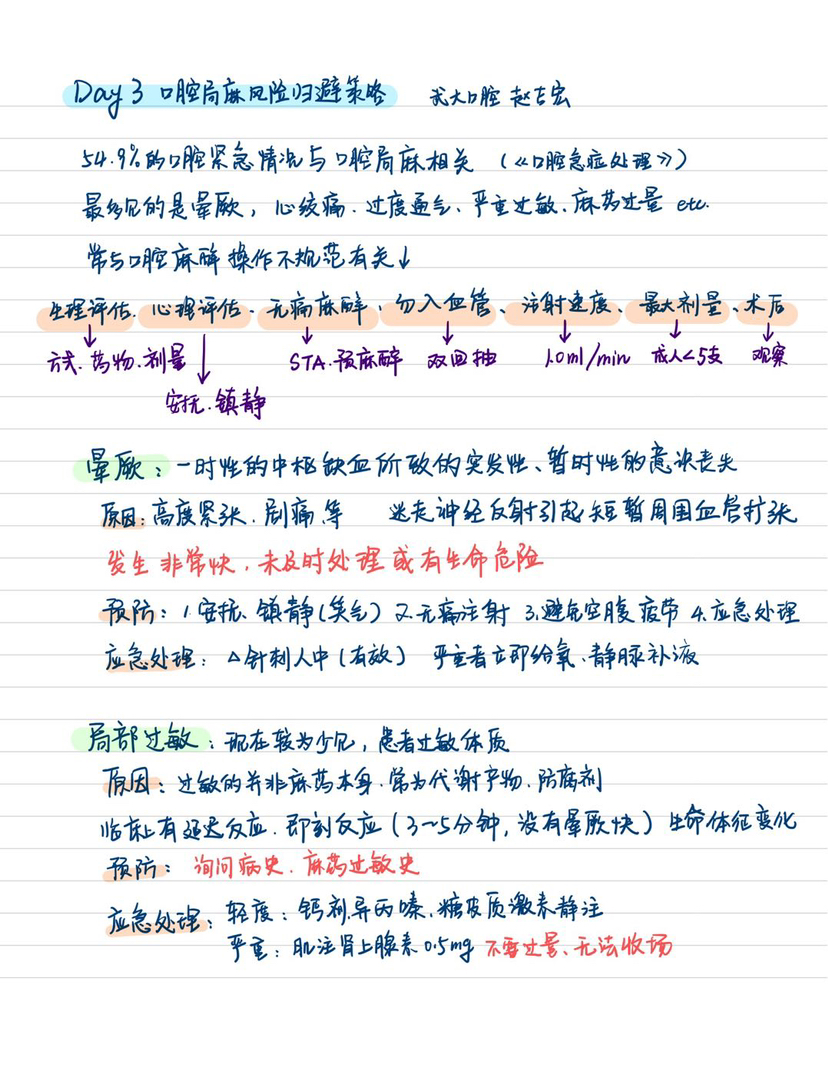 Day 3 口腔局麻风险归避策略 武大口腔 赵吉宏
54.9%的口腔紧急情况与口腔局麻相关 (《口腔急症处理》)
最多见的是晕厥, 心绞痛、过度通气、严重过敏、麻药过量 etc.
常与口腔麻醉操作不规范有关↓
生理评估、心理评估、无痛麻醉、勿入血管、注射速度、最大剂量、术后
方式、药物、剂量 STA、预麻醉 双回抽 1.0ml/min 成人<5支 观察
安抚、镇静
晕厥: 一时性的中枢缺血所致的突发性、暂时性的意识丧失
原因: 高度紧张、剧痛等 迷走神经反射引起短暂周围血管扩张
发生非常快, 未及时处理或有生命危险
预防: 1.安抚、镇静(笑气) 2.无痛注射 3.避免空腹疲劳 4.应急处理
应急处理: △针刺人中(有效) 严重者立即给氧、静脉补液
局部过敏: 现在较为少见, 患者过敏体质
原因: 过敏的并非麻药本身、常为代谢产物、防腐剂
临床上有延迟反应、即刻反应 (3~5分钟, 没有晕厥快) 生命体征变化
预防: 询问病史、麻药过敏史
应急处理: 轻度: 钙剂、异丙嗪、糖皮质激素静注
严重: 肌注肾上腺素0.5mg 不要过量、无法收场